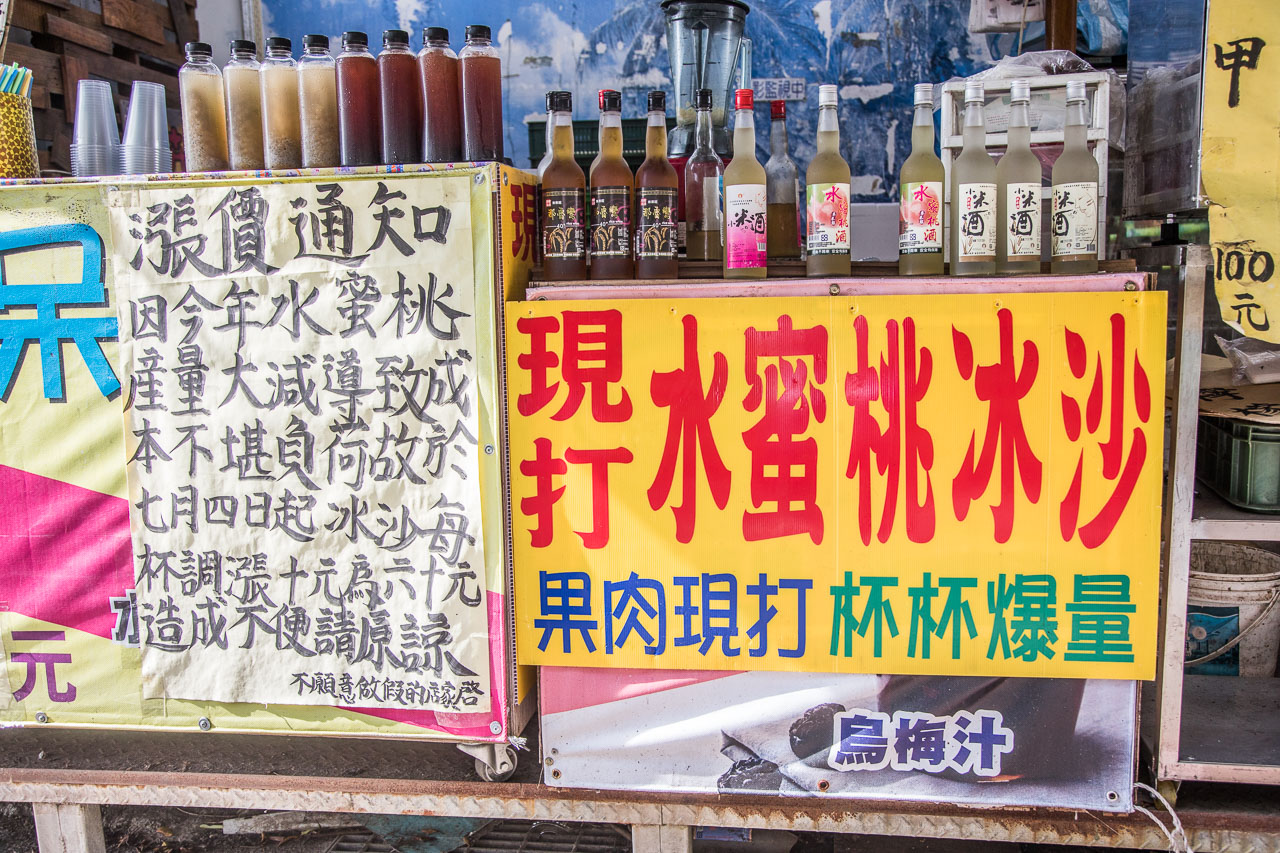 漲價通知
因今年水蜜桃
産量大減導致成
本不堪負荷故於
七月四日起冰沙每
杯調漲十元為六十元
造成不便請原諒
不願意做假的店家啓
呆
元
現
現打
水蜜桃冰沙
果肉現打 杯杯爆量
烏梅汁
影監視中
小米酒
水蜜桃酒
水蜜桃酒
小米酒
小米酒
小米酒
甲
100
元